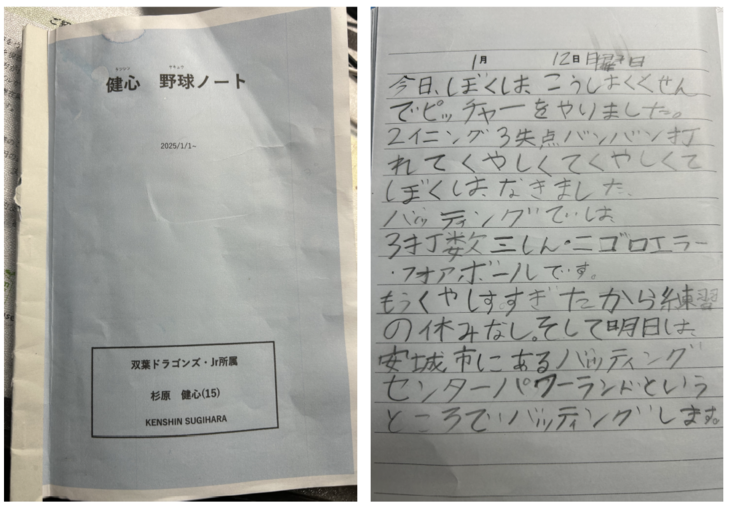 健心 野球ノート
2025/1/1~
双葉ドラゴンズ・Jr所属
杉原 健心(15)
KENSHIN SUGIHARA
1月 12日 日曜日
今日、ぼくは、こうはくせん
でピッチャーをやりました。
2イニング3失点バンバン打
れてくやしくてくやしくて
ぼくは、なきました、
バッティングでは
3打数三しん・ニゴロエラー
・フォアボールです。
もうくやしすぎたから練習
の休みなし。そして明日は、
安城市にあるバッティング
センターパワーランドという
ところでバッティングします。